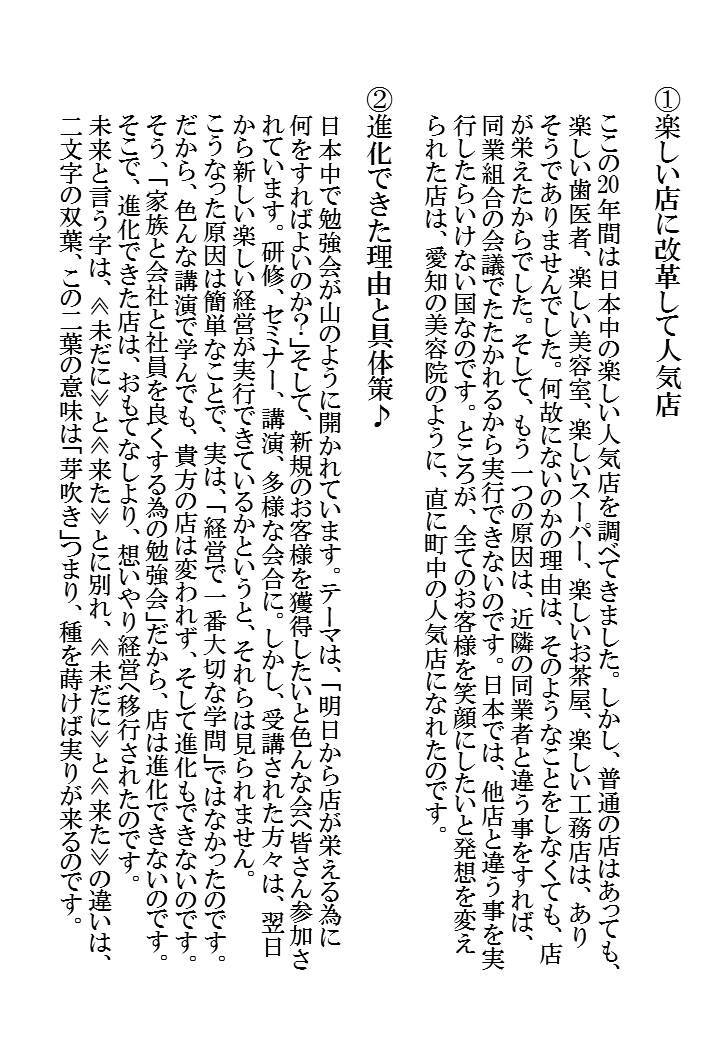 ①楽しい店に改革して人気店
ここの20年間は日本中の楽しい人気店を調べてきました。しかし、普通の店はあっても、
楽しい歯医者、楽しい美容室、楽しいスーパー、楽しいお茶屋、楽しい工務店は、あり
そうでありませんでした。何故にないのかの理由は、そのようなことをしなくても、店
が栄えたからでした。そして、もう一つの原因は、近隣の同業者と違う事をすれば、
同業組合の会議でたたかれるから実行できないのです。日本では、他店と違う事を実
行したらいけない国なのです。ところが、全てのお客様を笑顔にしたいと発想を変え
られた店は、愛知の美容院のように、直に町中の人気店になれたのです。
②進化できた理由と具体策♪
日本中で勉強会が山のように開かれています。テーマは、「明日から店が栄える為に
何をすればよいのか?」そして、新規のお客様を獲得したいと色んな会へ皆さん参加さ
れています。研修、セミナー、講演、多様な会合に。しかし、受講された方々は、翌日
から新しい楽しい経営が実行できているかというと、それらは見られません。
こうなった原因は簡単なことで、実は、「経営で一番大切な学問」ではなかったのです。
だから、色んな講演で学んでも、貴方の店は変われず、そして進化もできないのです。
そう、「家族と会社と社員を良くする為の勉強会」だから、店は進化できないのです。
そこで、進化できた店は、おもてなしより、想いやり経営へ移行されたのです。
未来と言う字は、≪未だに≫と≪来た≫とに別れ、≪未だに≫と≪来た≫の違いは、
二文字の双葉、この二葉の意味は「芽吹き」つまり、種を蒔けば実りが来るのです。